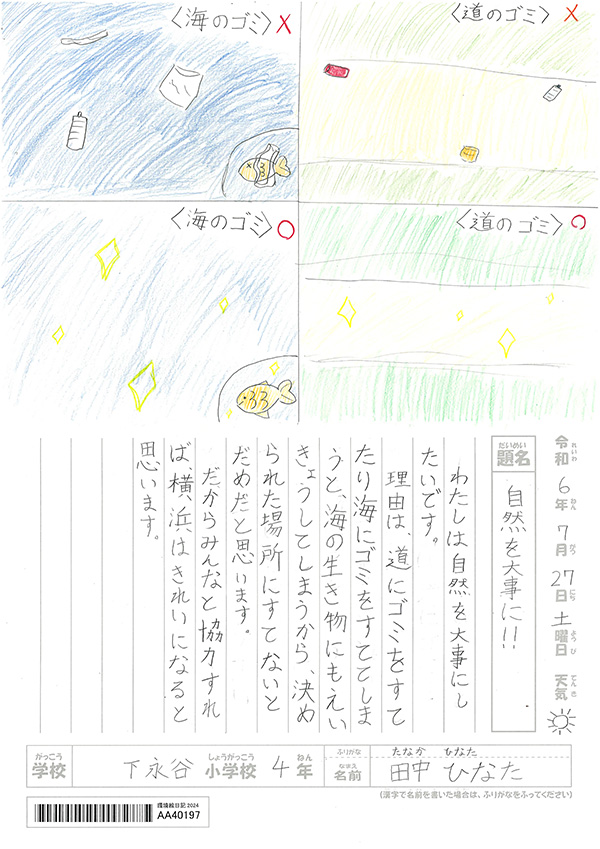 〈海のゴミ〉×
〈道のゴミ〉×
〈海のゴミ〉○
〈道のゴミ〉○
令和6年7月27日土曜日 天気
れいわ ねん がつ にち ようび てんき
だいめい
題名
自然を大事に!!
わたしは自然を大事にし
たいです。
理由は、道にゴミをすて
たり海にゴミをすててしま
うと、海の生き物にもえい
きょうしてしまうから、決め
られた場所にすてないと
だめだと思います。
だからみんなと協力すれ
ば、横浜はきれいになると
思います。
がっこう
学校
下永谷
しょうがっこう
小学校
4
ねん
年
ふりがな
たなか ひなた
なまえ
名前
田中 ひなた
(漢字で名前を書いた場合は、ふりがなをふってください)
環境絵日記 2024
AA40197